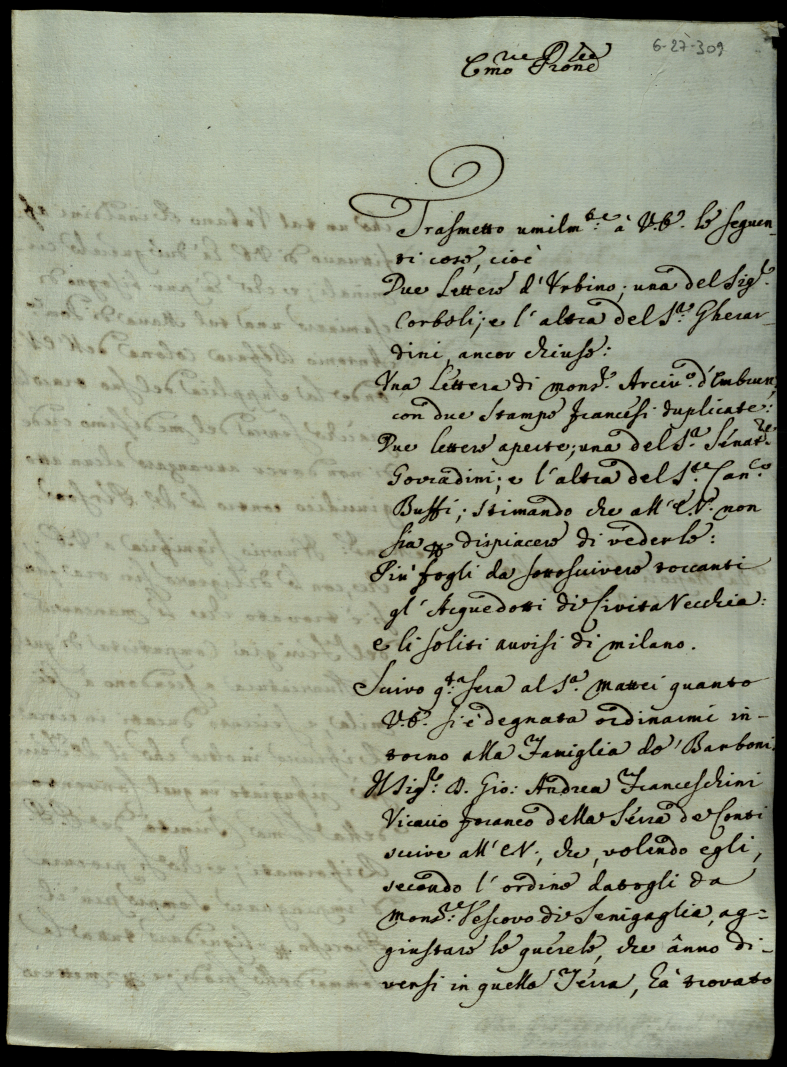 6-27-309
Emo ne Prone
Trasmetto umilmte: à V.E. le seguen-
ti cose, cioè
Due Lettere d'Urbino; una del Sigr.
Corboli; e l'altra del Sr. Gherar-
dini, ancor chiuse:
Una Lettera di monsr. Arcivo. d'Embrun,
con due stampe francesi duplicate:
Due lettere aperte; una del Sr. Senatre
Gozzadini; e l'altra del Sr. Canco.
Bussi; stimando che all'E.V. non
sia p dispiacere di vederle:
Più fogli da sottoscivere toccanti
gl'Acquedotti di CivitaVecchia:
e li soliti avvisi di milano.
Scivo qta sera al Sr. Mattei quanto
V.E. si è degnata ordinarmi in-
torno alla Famiglia de' Barboni.
Il Sigr. D. Gio: Andrea Franceschini
Vicario foraneo della Serra de Conti
scrive all'E.V., che, volendo egli,
secondo l'ordine datogli da
Monsr. Vescovo di Senigaglia, ag=
giustare le querele, che ânno di-
versi in quella Terra, hà trovato